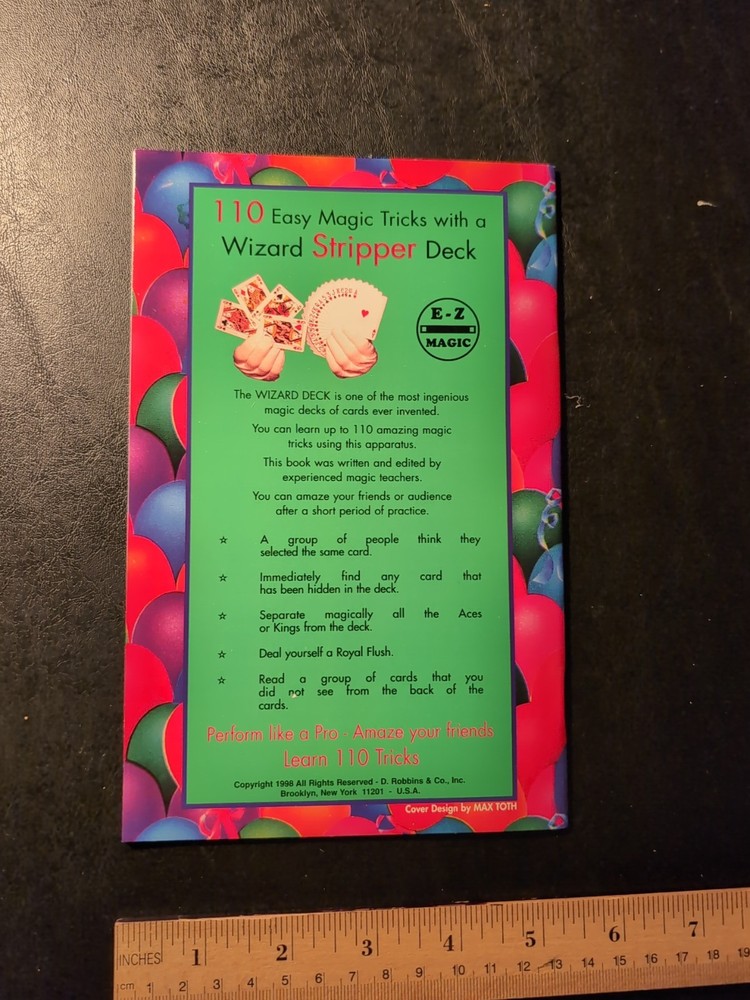 110 Easy Magic Tricks with a
Wizard Stripper Deck
E-Z
MAGIC
The WIZARD DECK is one of the most ingenious
magic decks of cards ever invented.
You can learn up to 110 amazing magic
tricks using this apparatus.
This book was written and edited by
experienced magic teachers.
You can amaze your friends or audience
after a short period of practice.
☆ A group of people think they
selected the same card.
☆ Immediately find any card that
has been hidden in the deck.
☆ Separate magically all the Aces
or Kings from the deck.
☆ Deal yourself a Royal Flush.
☆ Read a group of cards that you
did not see from the back of the
cards.
Perform like a Pro - Amaze your friends
Learn 110 Tricks
Copyright 1998 All Rights Reserved - D. Robbins & Co., Inc.
Brooklyn, New York 11201 - U.S.A.
Cover Design by MAX TOTH
INCHES 1 2 3 4 5 6 7
cm 1 2 3 4 5 6 7 8 9 10 11 12 13 14 15 16 17 18 19